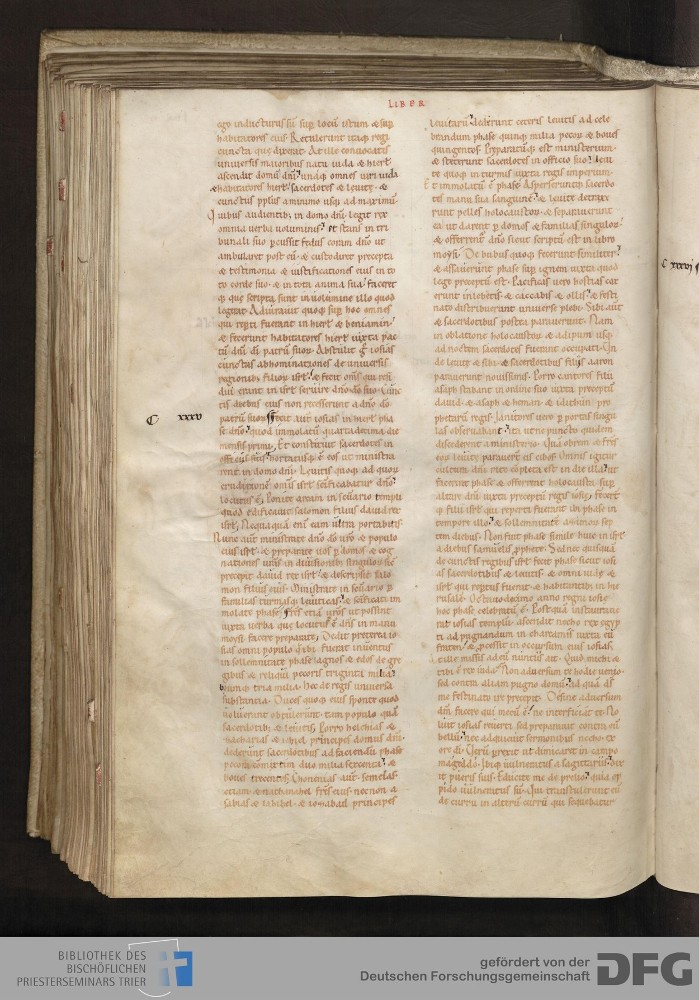 LIBER
ego inducturus sū sup locū istum & sup
habitatores eius. Retulerunt itaq; regi
cuncta quę dixerat. At ille convocatis
universis maioribus natu iuda & hierłm
ascendit domū dn̄i. unaq; omnes viri iuda
& habitatores hierłm. sacerdotes & levitę. &
cunctus pplūs a minimo usq; ad maximū.
Quibus audientib; in domo dn̄i. legit rex
omnia verba voluminis. et stans in tri
bunali suo pcussit fedus coram dn̄o ut
ambularet post eū. & custodiret precepta
& testimonia & iustificationes eius in to
to corde suo & in tota anima sua. faceret
q; quę scripta sunt in volumine illo quod
legerat. Adiuravit quoq; sup hoc omnes
qui repti fuerant in hierłm & beniamin.
& fecerunt habitatores hierłm iuxta pac
tū dn̄i dī patrū suoꝝ. Abstulit g iosias
cunctas abhominationes de universis
regionib; filioꝝ isrł. & fecit om̄s qui resi
dui erant in isrł servire dn̄o dō suo. Cunc
tis diebus eius non recesserunt a dn̄o dō
patrū suoꝝ. Fecit aut iosias in hierłm pha
C xxxv
se dn̄o. quod immolatū quarta decima die
mensis primi. Et constituit sacerdotes in
officiis suis. hortatusq; ē eos ut ministra
rent in domo dn̄i. Levitis quoq; ad quoꝝ
eruditionē om̄is isrł scificabatur dn̄o.
locutus ē. Ponite arcam in sc̄uario templi
quod edificavit salomon filius david rex
isrł. Nequaquā enī eam ultra portabitis.
Nunc aut ministrate dn̄o dō vr̄o & populo
eius isrł. & preparate vos p domos & cog
nationes vr̄as in divisionib; singuloꝝ sic
precepit david rex isrł. & descripsit salo
mon filius eius. Ministrate in sc̄uario p
familias turmasq; leviticas. & sc̄ificati im
molate phase. frēs etiā vr̄os ut possint
iuxta verba quę locutus ē dn̄s in manu
moysi facere preparate. Dedit preterea io
sias omni populo qui ibi fuerat inventus
in sollemnitate phase agnos & edos de gre
gibus & reliqui pecoris triginta milia.
bovum q; tria milia. Hęc de regis universa
substantia. Duces quoq; eius sponte quod
voluerant obtulerunt. tam populo quā
sacerdotib; & levitis. Porro helchias &
zacharias & iehiel principes domus dn̄i.
dederunt sacerdotibus ad faciendū phase
pecora comixtim duo milia sexcenta. &
boves trecentos. Chonenias aut. semeias
etiam & nathanahel frēs eius. necnon a
sabias & iahihel & iozabath principes
levitarū. dederunt ceteris levitis ad cele
brandum phase quinq; milia pecoꝝ & boves
quingentos. Preparatūq; est ministerium.
& steterunt sacerdotes in officio suo. levi
tę quoq; in turmis iuxta regis imperium.
Et immolatū ē phase. Asperseruntq; sacerdo
tes manu sua sanguinē. & levitę detraxe
runt pelles holocaustoꝝ. & separaverunt
ea ut darent p domos & familias singuloꝝ.
& offerrent dn̄o sicut scriptū est in libro
moysi. De bubus quoq; fecerunt similiter.
C xxxvj
& assaverunt phase sup ignem iuxta quod
lege preceptū est. Pacificas vero hostias cox
erunt in lebetis & caccabis & ollis. & festi
nato distribuerunt universę plebi. Sibi aut
& sacerdotibus postea paraverunt. Nam
in oblatione holocaustoꝝ & adipum usq;
ad noctem sacerdotes fuerunt occupati. Un
de levitę & sibi & sacerdotibus filiis aaron
paraverunt novissimis. Porro cantores filii
asaph stabant in ordine suo iuxta preceptū
david. & asaph & heman & idithun pro
phetarū regis. Janitores vero p portas singu
las observabant. ita ut ne puncto quidem
discederent a ministerio. Quā obrem & frēs
eoꝝ levitę paraverr eis cibos. Omnis igitur
cultura dn̄i rite cōpleta est in die illa. ut
facerent phase & offerrent holocausta sup
altare dn̄i iuxta preceptū regis iosię. Fecert
q; filii isrł qui reperti fuerant ibi phase in
tempore illo. & sollemnitatē azimoꝝ sep
tem diebus. Non fuit phase simile huic in isrł
a diebus samuelis pphete. Sed nec quisquā
de cunctis regibus isrł fecit phase sicut iosi
as sacerdotibus & levitis & omni iudę &
isrł qui reptus fuerat & habitantib; in hie
rusalē. Octavodecimo anno regni iosię
hoc phase celebratū ē. Postquā instaurave
rat iosias templū. ascendit necho rex egyp
ti ad pugnandum in charcamis iuxta eu
fraten. & pcessit in occursum eius iosias.
At ille missis ad eū nuntiis ait. Quid michi &
tibi ē rex iuda. Non adversum te hodie venio.
sed contra aliam pugno domū. ad quā ds̄
me festinato ire precepit. Desine adversum
dm̄ facere qui mecū ē. ne interficiat te. No
luit iosias reverti. sed preparavit contra eū
bellū. nec adquievit sermonibus necho ex
ore dī. Verū prexit ut dimicaret in campo
mageddo. Ibiq; vulneratus a sagittariis. dix
it pueris suis. Educite me de prelio. quia op
pido vulneratus sū. Qui transtulerunt eū
de curru in alterū currū qui sequebatur
BIBLIOTHEK DES
BISCHÖFLICHEN
PRIESTERSEMINARS TRIER
gefördert von der
Deutschen Forschungsgemeinschaft
DFG